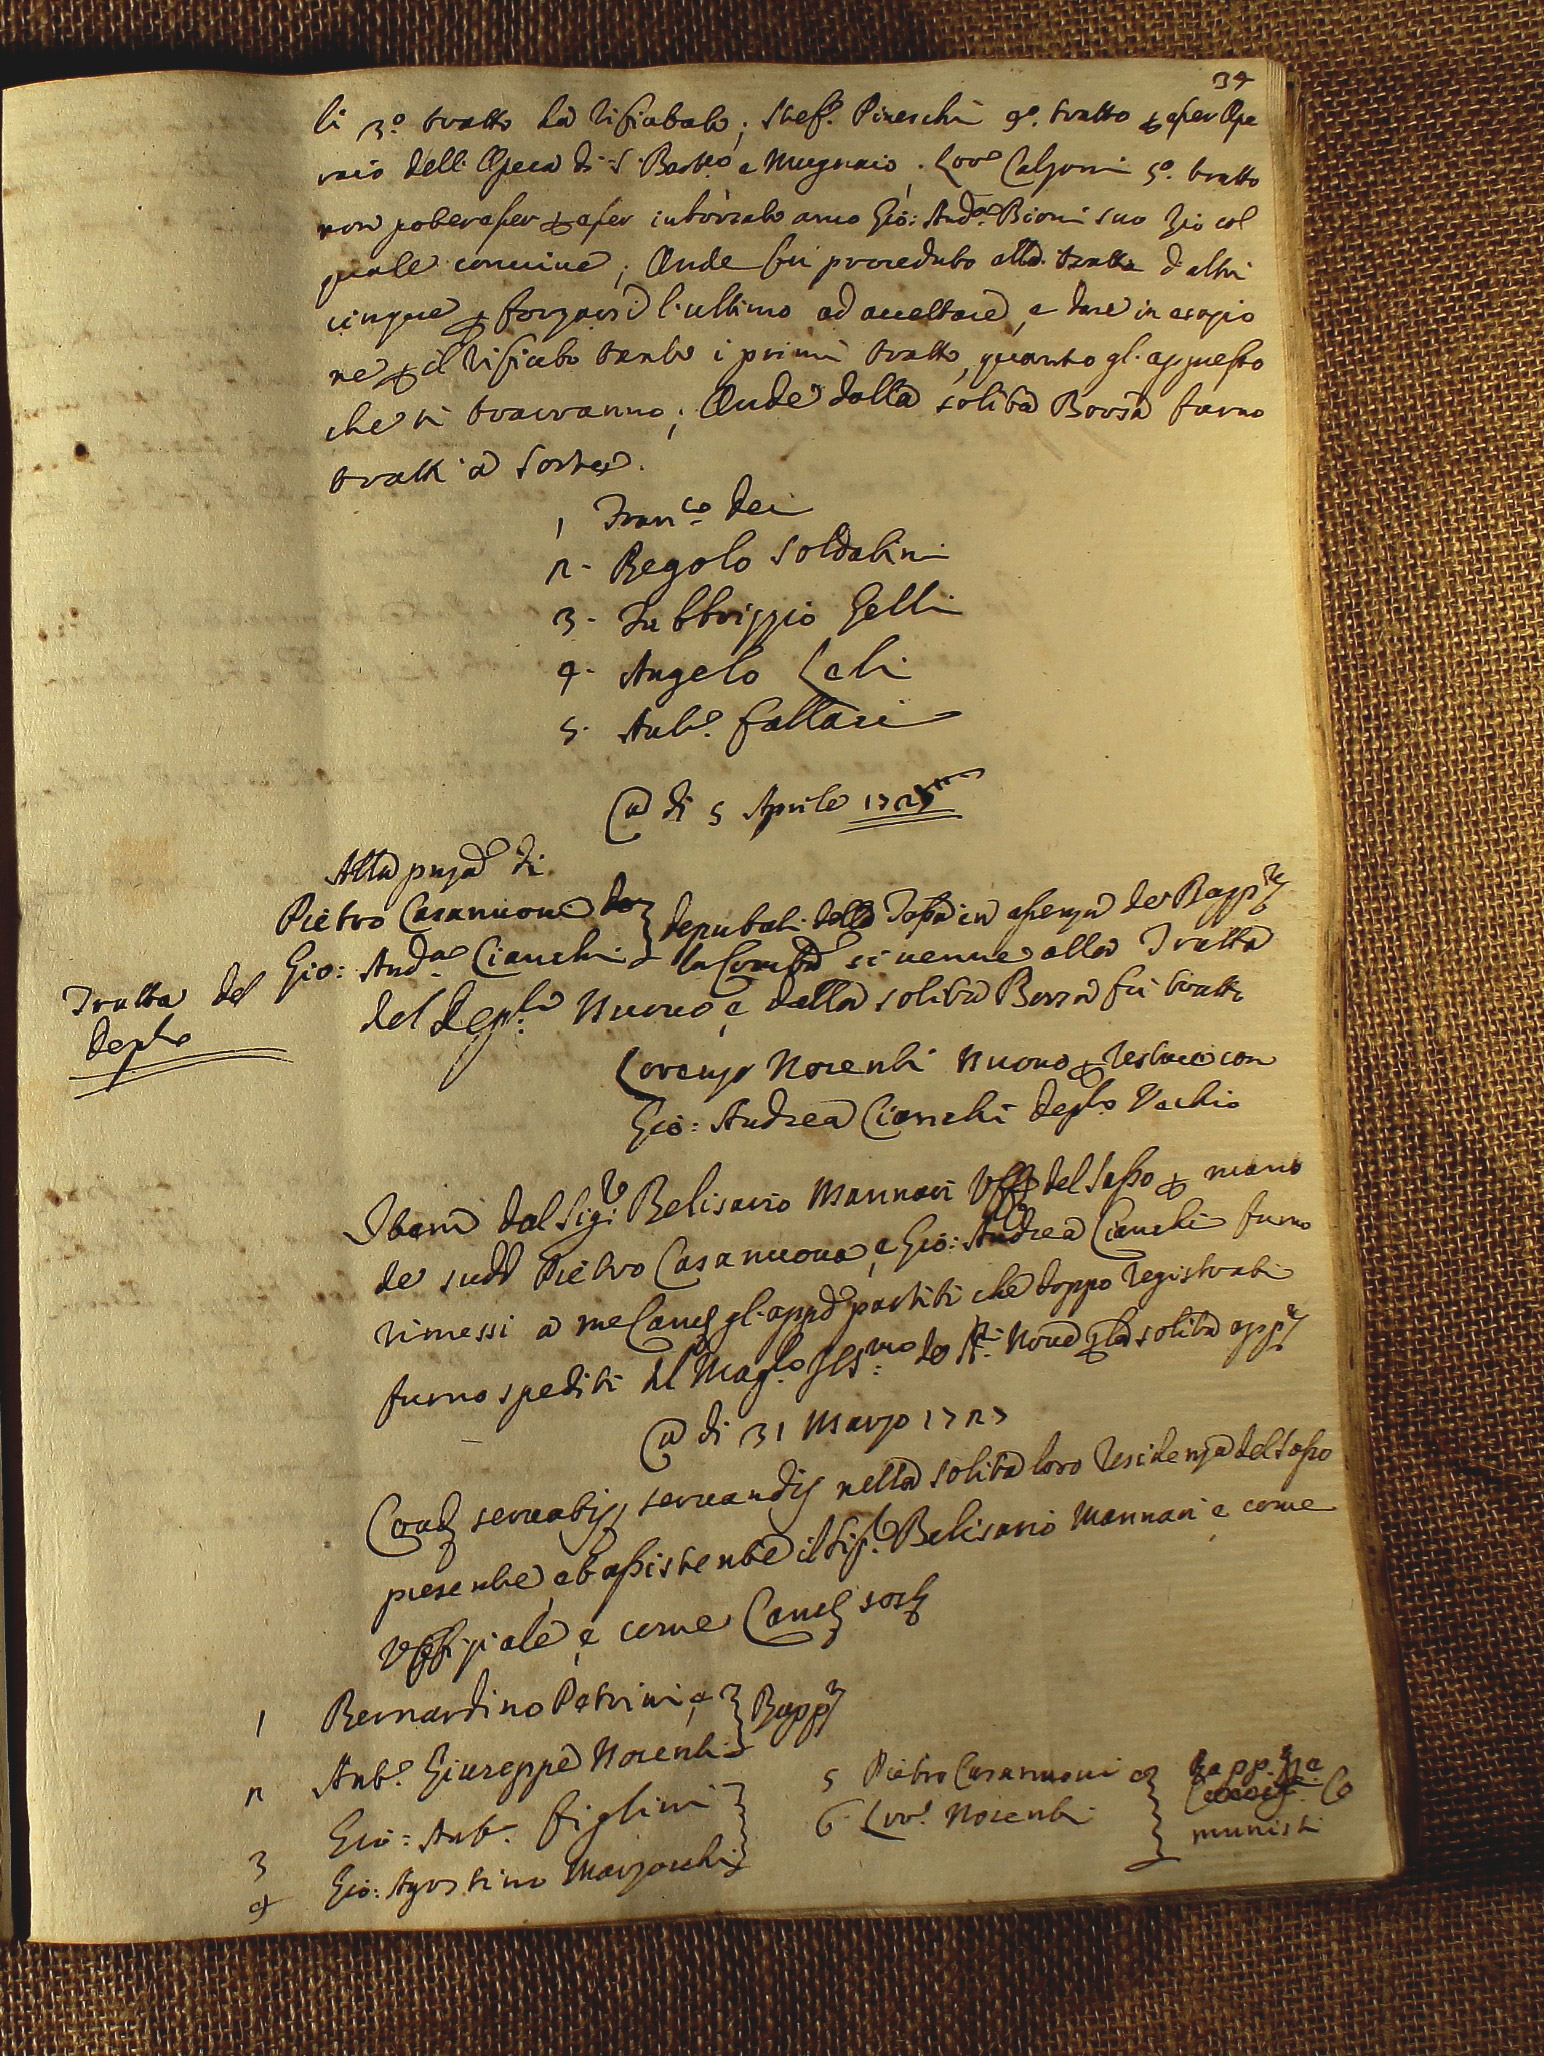 34
li 3.º tratto ha rifiutato; Stef.º Pireschi 4.º tratto p esser Ope
raio dell'Opera di S. Bart.eo e Mugnaio. Lor.º Calzoni 5.º tratto
non poter esser p esser intorzato anco Gio: And.ª Bioni suo Zio col
quale conuiue; Onde fu proceduto alla tratta d'altri
cinque p forzarsi l'ultimo ad accettare, e dare in esazio
ne p il rifiuto tanto i primi tratti, quanto gl'appresso
che si trarranno; Onde dalla solita Borsa furno
tratti a sorte.
1 Fran.co Dei
2. Regolo Soldatini
3. Fabbrizzio Gelli
4. Angelo Leli
5. Ant.º Fattari
A di 5 Aprile
Alla pnza di
Pietro Casanuoua
Gio: And.ª Cianchi
deputati in assenza de Rapp.ti
si uenne alla Tratta
del Dep.to Nuouo, e dalla solita Borsa fu tratto
Tratta del
Dep.to
Lorenzo Norenti Nuouo p restare con
Gio: Andrea Cianchi Dep.to Vechio
Item dal Sig.re Belisario Mannari Uff.e del Sasso p mano
de sudd.i Pietro Casanuoua, e Gio: Andrea Cianchi furno
rimessi a me Canc.e gl'app.di partiti che doppo registrati
furno spediti al Mag.to Ill.mo de SS.ri Noue p la solita app.ne
A di 31 Marzo 1727
Coad.ti seruatis, seruandis nella solita loro residenza del Sasso
presente, et assistente il Sig.re Belisario Mannari e come
Uffiziale, e come Canc.e sost.
1 Bernardino Petrini, e Rapp.ti
2 Ant.º Giuseppe Norenti
3 Gio: Ant.º Figlini
4 Gio: Agostino Marzocchi
5 Pietro Casanuoui e Rapp.ti
6 Lor.º Norenti Co
munisti